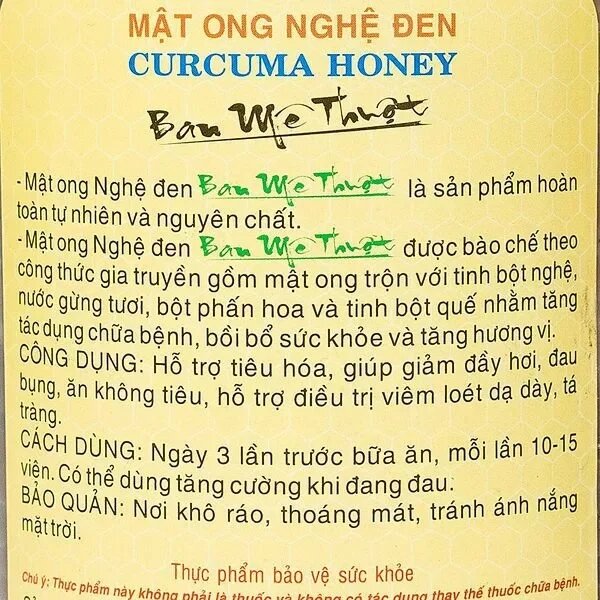 MẬT ONG NGHỆ ĐEN
CURCUMA HONEY
Ban Mê Thuột
- Mật ong Nghệ đen Ban Mê Thuột là sản phẩm hoàn
toàn tự nhiên và nguyên chất.
- Mật ong Nghệ đen Ban Mê Thuột được bào chế theo
công thức gia truyền gồm mật ong trộn với tinh bột nghệ,
nước gừng tươi, bột phấn hoa và tinh bột quế nhằm tăng
tác dụng chữa bệnh, bồi bổ sức khỏe và tăng hương vị.
CÔNG DỤNG: Hỗ trợ tiêu hóa, giúp giảm đầy hơi, đau
bụng, ăn không tiêu, hỗ trợ điều trị viêm loét dạ dày, tá
tràng.
CÁCH DÙNG: Ngày 3 lần trước bữa ăn, mỗi lần 10-15
viên. Có thể dùng tăng cường khi đang đau.
BẢO QUẢN: Nơi khô ráo, thoáng mát, tránh ánh nắng
mặt trời.
Thực phẩm bảo vệ sức khỏe
Chú ý: Thực phẩm này không phải là thuốc và không có tác dụng thay thế thuốc chữa bệnh.